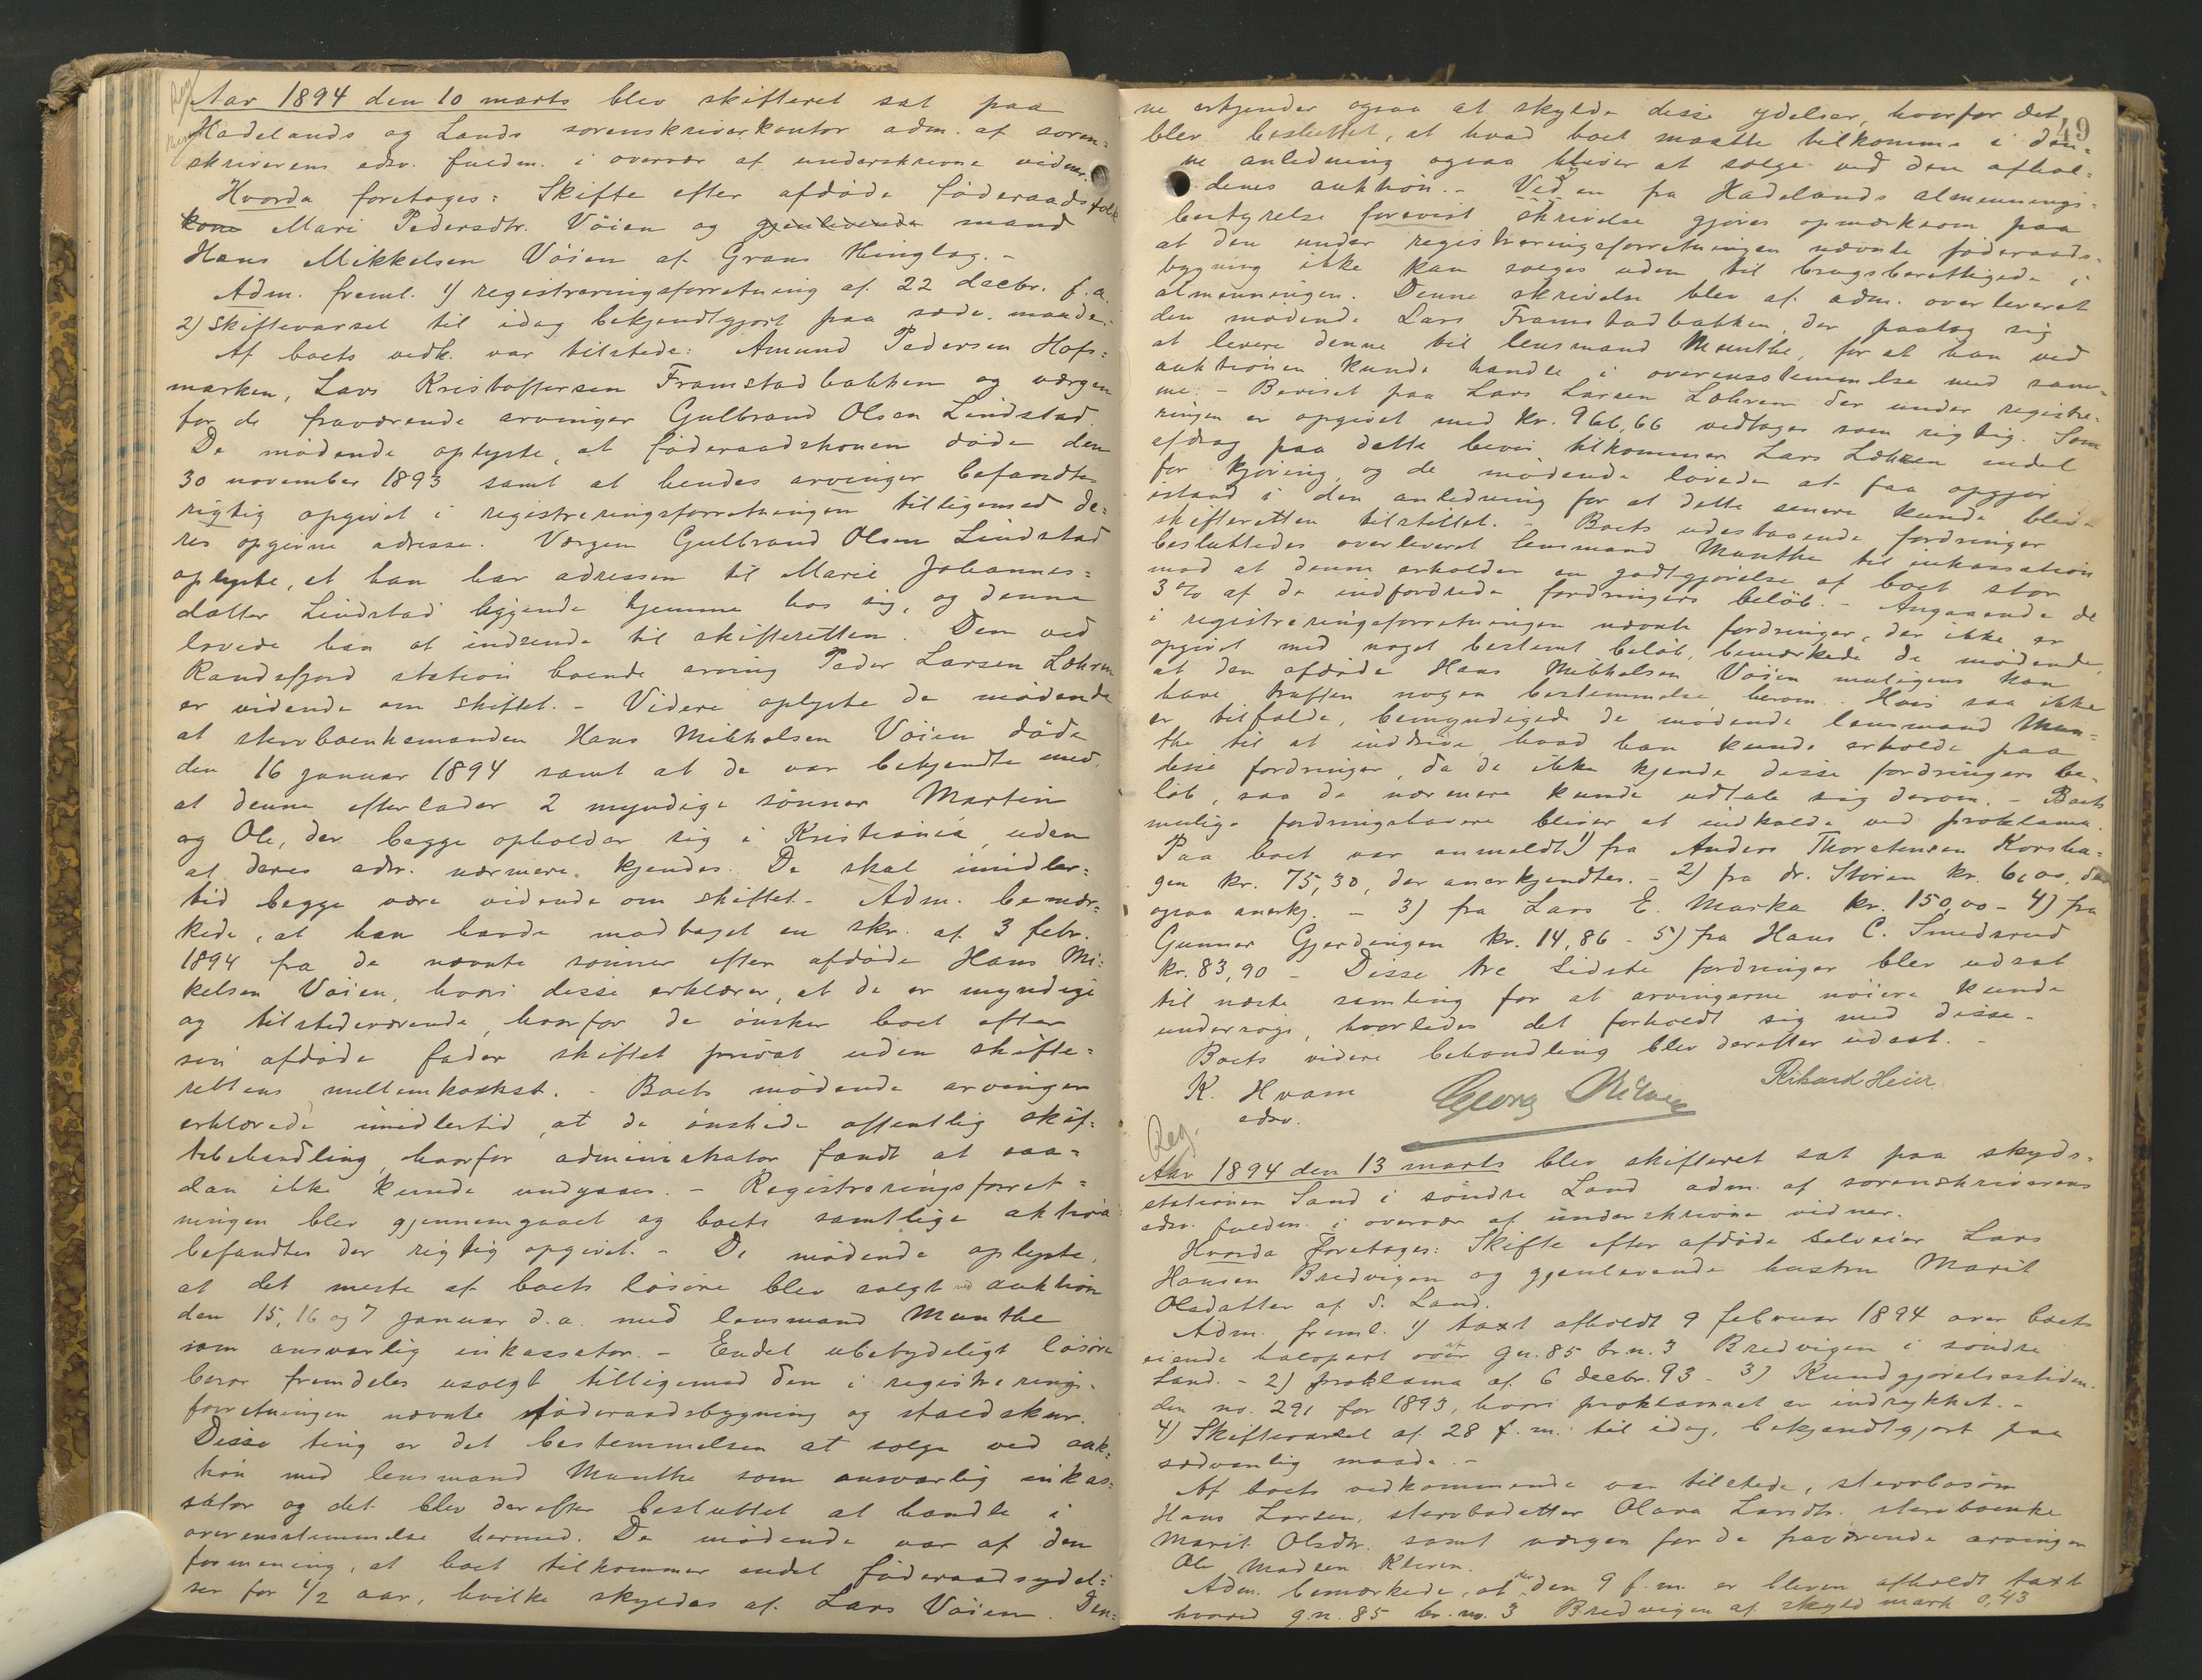 Reg.
Aar 1894 den 10 marts blev skifteret sat paa
Hadelands og Lands sorenskriverkontor adm. af soren=
skriverens edsv. fuldm. i overvær af underskrevne vidner.
Hvorda foretoges: Skifte efter afdøde føderaadsfolk
kone Mari Pedersdtr. Vøien og gjenlevende mand
Hans Mikkelsen Vøien af Grans thinglag. -
Adm. freml. 1) registreringsforretning af 22 decbr. f. a.
2) Skiftevarsel til idag bekjendtgjort paa sædv. maade. -
Af boets vedk. var tilstede: Amund Pedersen Hofs=
marken, Lars Kristoffersen Framstadbakken og værgen
for de fraværende arvinger Gulbrand Olsen Lindstad.
De mødende oplyste, at føderaadskonen døde den
30 november 1893 samt at hendes arvinger befandtes
rigtig opgivet i registreringsforretningen tilligemed de=
res opgivne adresse. Værgen Gulbrand Olsen Lindstad
oplyste, at han har adressen til Marie Johannes=
datter Lindstad liggende hjemme hos sig, og denne
lovede han at indsende til skifteretten. Den ved
Randsfjord station boende arving Peder Larsen Løhren
er vidende om skiftet. - Videre oplyste de mødende
at stervboenkemanden Hans Mikkelsen Vøien døde
den 16 januar 1894 samt at de var bekjendte med,
at denne efterlader 2 myndige sønner Martin
og Ole, der begge opholder sig i Kristiania, uden
at deres adr. nærmere kjendes. De skal imidler=
tid begge være vidende om skiftet. - Adm. bemær=
kede, at han havde modtaget en skr. af 3 febr.
1894 fra de nævnte sønner efter afdøde Hans Mi=
kelsen Vøien, hvori disse erklærer, at de er myndige
og tilstedeværende, hvorfor de ønsker boet efter
sin afdøde fader skiftet privat uden skifte=
rettens mellemkomst. - Boets mødende arvinger
erklærede imidlertid, at de ønskede offentlig skif=
tebehandling, hvorfor administrator fandt at saa=
dan ikke kunde undgaaes. - Registreringsforret=
ningen blev gjennemgaaet og boets samtlige aktiva
befandtes der rigtig opgivet. - De mødende oplyste,
at det meste af boets løsøre blev solgt ved auktion
den 15, 16 og 7 januar d. a. med lensmand Munthe
som ansvarlig inkassator. - Endel ubetydeligt løsøre
beror fremdeles usolgt tilligemed den i registrerings=
forretningen nævnte føderaadsbygning og staldskur.
Disse ting er det bestemmelsen at sælge ved auk=
tion med lensmand Munthe som ansvarlig inkas=
sator og det blev derefter besluttet at handle i
overensstemmelse hermed. De mødende var af den
formening, at boet tilkommer endel føderaadsydel=
ser for 1/2 aar, hvilke skyldes af Lars Vøien. Den=
49
ne erkjender ogsaa at skylde disse ydelser, hvorfor det
blev besluttet, at hvad boet maatte tilkomme i den=
ne anledning ogsaa bliver at sælge ved den afhol=
denes auktion. - Ved en fra Hadelands almennings=
bestyrelse forevist skrivelse gjøres opmærksom paa
at den under registreringsforretningen nævnte føderaads=
bygning ikke kan sælges uden til brugsberettigede i
almenningen. Denne skrivelse blev af adm. overleveret
den mødende Lars Framstadbakken, der paatog sig
at levere denne til lensmand Munthe, for at han ved
auktionen kunde handle i overensstemmelse med sam=
me. - Beviset paa Lars Larsen Løhren der under registre=
ringen er opgivet med kr. 966,66 vedtages som rigtig. Som
afdrag paa dette bevis tilkommer Lars Løhren endel
for kjøring, og de mødende lovede at faa opgjør
istand i den anledning for at dette senere kunde blive
skifteretten tilstillet. - Boets udestaaende fordringer
besluttedes overleveret lensmand Munthe til inkassation
mod at denne erholder en godtgjørelse af boet stor
3 % af de indfordrede fordringers beløb. - Angaaende de
i registreringsforretningen nævnte fordringer, der ikke er
opgivet med noget bestemt beløb, bemærkede de mødende,
at den afdøde Hans Mikkelsen Vøien muligens kan
have truffen nogen bestemmelse herom. Hvis saa ikke
er tilfælde, bemyndigede de mødende lensmand Mun=
the til at inddrive, hvad han kunde erholde paa
disse fordringer, da de ikke kjende disse fordringers be=
løb, saa de nærmere kunde udtale sig derom. - Boets
mulige fordringshavere bliver at indkalde ved proklama.
Paa boet var anmeldt 1) fra Anders Thorstensen Korsha=
gen kr. 75,30, der anerkjendtes. - 2) fra dr. Støren kr. 6,00, der
ogsaa anerkj. - 3) fra Lars E. Marka kr. 150,00 - 4) fra
Gunner Gjerdingen kr. 14,86 - 5) fra Hans C. Smedsrud
kr. 83,90 - Disse tre sidste fordringer blev udsat
til næste samling for at arvingerne nøiere kunde
undersøge, hvorledes det forholdt sig med disse. -
Boets videre behandling blev derefter udsat. -
K. Hvam
edsv.
Georg
Rikard Heier
Reg.
Aar 1894 den 13 marts blev skifteret sat paa skyds=
stationen Sand i søndre Land adm. af sorenskriverens
edsv. fuldm. i overvær af underskrevne vidner.
Hvorda foretoges: Skifte efter afdøde selveier Lars
Hansen Bredvigen og gjenlevende hustru Marit
Olsdatter af S. Land.
Adm. freml. 1) taxt afholdt 9 februar 1894 over boets
eiende halvpart af gn. 85 br. n. 3 Bredvigen i søndre
Land. - 2) proklama af 6 decbr. 93 - 3) Kundgjørelsestiden=
den no. 291 for 1893, hvori proklamaet er indrykket. -
4) Skiftevarsel af 28 f. m. til idag, bekjendtgjort paa
sædvanlig maade. -
Af boets vedkommende var tilstede, stervbosøn
Hans Larsen, stervbodatter Olava Larsdtr. stervboenke
Marit Olsdtr. samt værgen for de fraværende arvinger
Ole Madsen Kleven.
Adm. bemærkede, at der den 9 f. m. er bleven afholdt taxt
hvorved g.n. 85 br. no. 3 Bredvigen af skyld mark 0,43